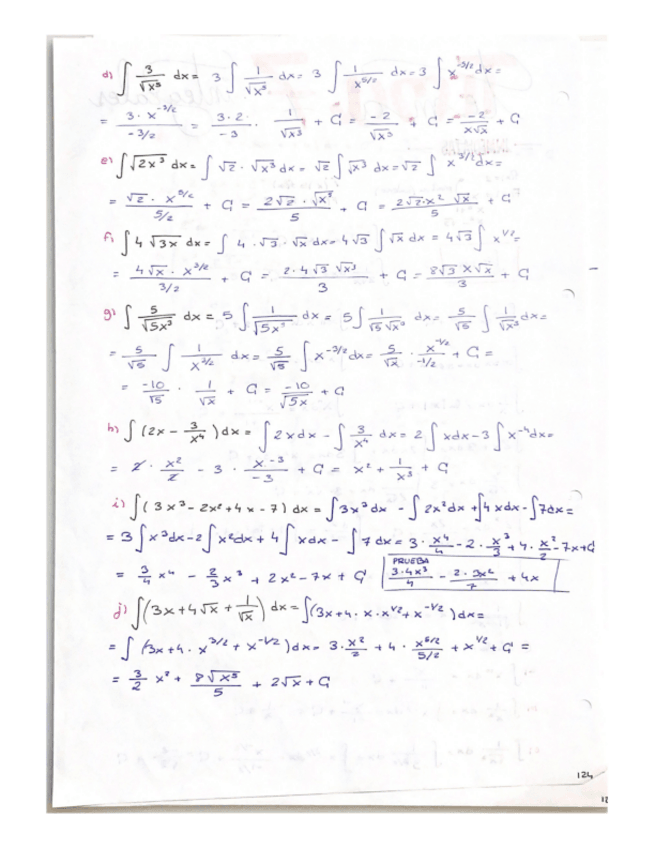 d) ∫ 3/√x⁵ dx = 3 ∫ 1/√x⁵ dx = 3 ∫ 1/x^(5/2) dx = 3 ∫ x^(-5/2) dx =
= 3·x^(-3/2) / -3/2 = 3·2/-3 · 1/√x³ + C = -2/√x³ + C = -2/x√x + C
e) ∫ √2x³ dx = ∫ √2 · √x³ dx = √2 ∫ √x³ dx = √2 ∫ x^(3/2) dx =
= √2 · x^(5/2) / 5/2 + C = 2√2 · √x⁵ / 5 + C = 2√2·x² √x / 5 + C
f) ∫ 4 √3x dx = ∫ 4 · √3 · √x dx = 4√3 ∫ √x dx = 4√3 ∫ x^(1/2) =
= 4√x · x^(3/2) / 3/2 + C = 2·4√3 √x³ / 3 + C = 8√3 x√x / 3 + C
g) ∫ 5/√5x³ dx = 5 ∫ 1/√5x³ dx = 5 ∫ 1/√5 √x³ dx = 5/√5 ∫ 1/√x³ dx =
= 5/√5 ∫ 1/x^(3/2) dx = 5/√5 ∫ x^(-3/2) dx = 5/√x · x^(-1/2) / -1/2 + C =
= -10/√5 · 1/√x + C = -10/√5x + C
h) ∫ (2x - 3/x⁴) dx = ∫ 2x dx - ∫ 3/x⁴ dx = 2 ∫ x dx - 3 ∫ x⁻⁴ dx =
= 2 · x²/2 - 3 · x⁻³/-3 + C = x² + 1/x³ + C
i) ∫ (3x³ - 2x² + 4x - 7) dx = ∫ 3x³ dx - ∫ 2x² dx + ∫ 4x dx - ∫ 7 dx =
= 3 ∫ x³ dx - 2 ∫ x² dx + 4 ∫ x dx - ∫ 7 dx = 3 · x⁴/4 - 2 · x³/3 + 4 · x²/2 - 7x + C
= 3/4 x⁴ - 2/3 x³ + 2x² - 7x + C
PRUEBA
3·4x³/4 - 2·3x²/7 + 4x
j) ∫ (3x + 4√x + 1/√x) dx = ∫ (3x + 4 · x · x^(1/2) + x^(-1/2)) dx =
= ∫ (3x + 4 · x^(3/2) + x^(-1/2)) dx = 3 · x²/2 + 4 · x^(5/2) / 5/2 + x^(1/2) + C =
= 3/2 x² + 8√x⁵/5 + 2√x + C
124